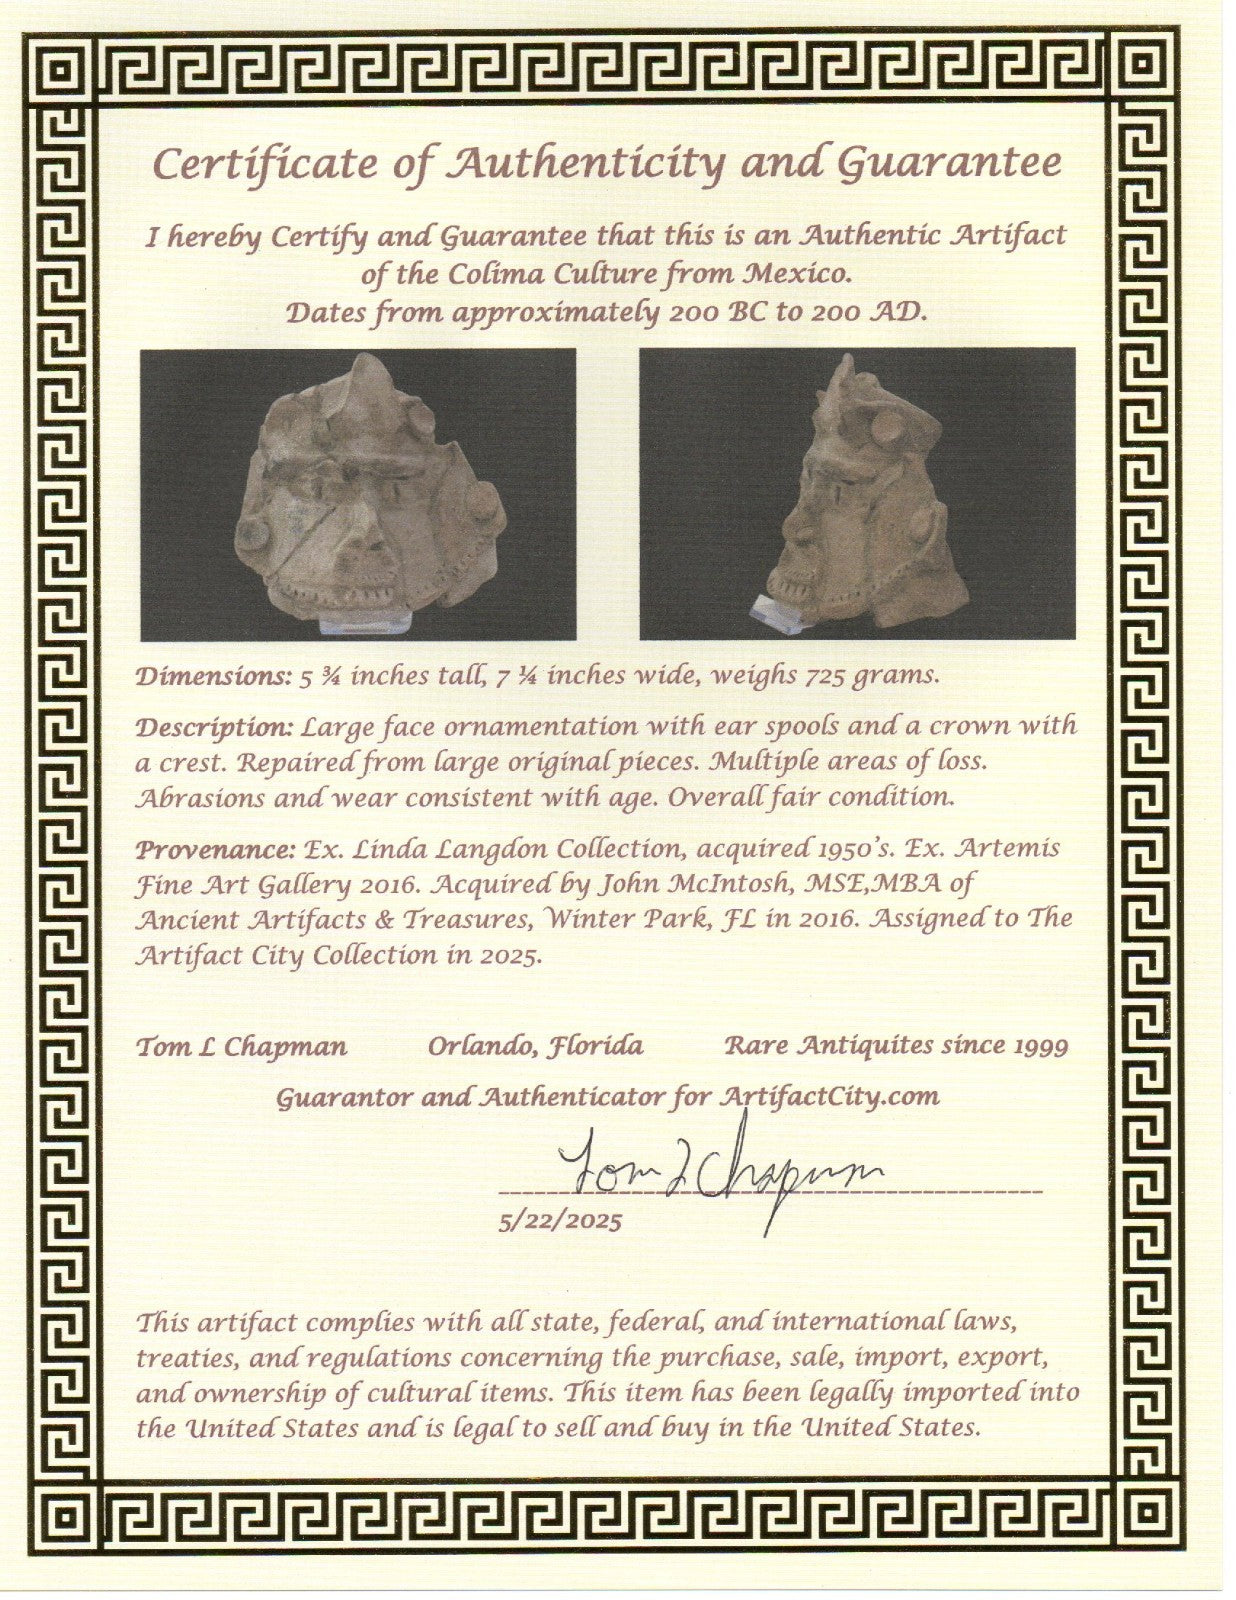 Certificate of Authenticity and Guarantee
I hereby Certify and Guarantee that this is an Authentic Artifact
of the Colima Culture from Mexico.
Dates from approximately 200 BC to 200 AD.
Dimensions: 5 ¾ inches tall, 7 ¼ inches wide, weighs 725 grams.
Description: Large face ornamentation with ear spools and a crown with
a crest. Repaired from large original pieces. Multiple areas of loss.
Abrasions and wear consistent with age. Overall fair condition.
Provenance: Ex. Linda Langdon Collection, acquired 1950's. Ex. Artemis
Fine Art Gallery 2016. Acquired by John McIntosh, MSE,MBA of
Ancient Artifacts & Treasures, Winter Park, FL in 2016. Assigned to The
Artifact City Collection in 2025.
Tom L Chapman Orlando, Florida Rare Antiquites since 1999
Guarantor and Authenticator for ArtifactCity.com
Tom L Chapman
5/22/2025
This artifact complies with all state, federal, and international laws,
treaties, and regulations concerning the purchase, sale, import, export,
and ownership of cultural items. This item has been legally imported into
the United States and is legal to sell and buy in the United States.